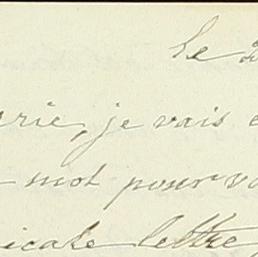 le 2
arie, je vais
mot pour vo
icale lettre